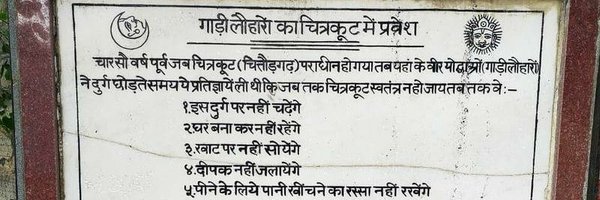 गाड़ी लौहारों का चित्रकूट में प्रवेश
चार सौ वर्ष पूर्व जब चित्रकूट (चित्तौड़गढ़) पराधीन हो गया तब यहां के वीर योद्धाओं (गाड़ी लौहारों)
ने दुर्ग छोड़ते समय ये प्रतिज्ञायें ली थी कि जब तक चित्रकूट स्वतंत्र न हो जाय तब तक वे :-
१. इस दुर्ग पर नहीं चढ़ेंगे
२. घर बना कर नहीं रहेंगे
३. खाट पर नहीं सोयेंगे
४. दीपक नहीं जलायेंगे
५. पीने के लिये पानी खींचने का रस्सा नहीं रखेंगे